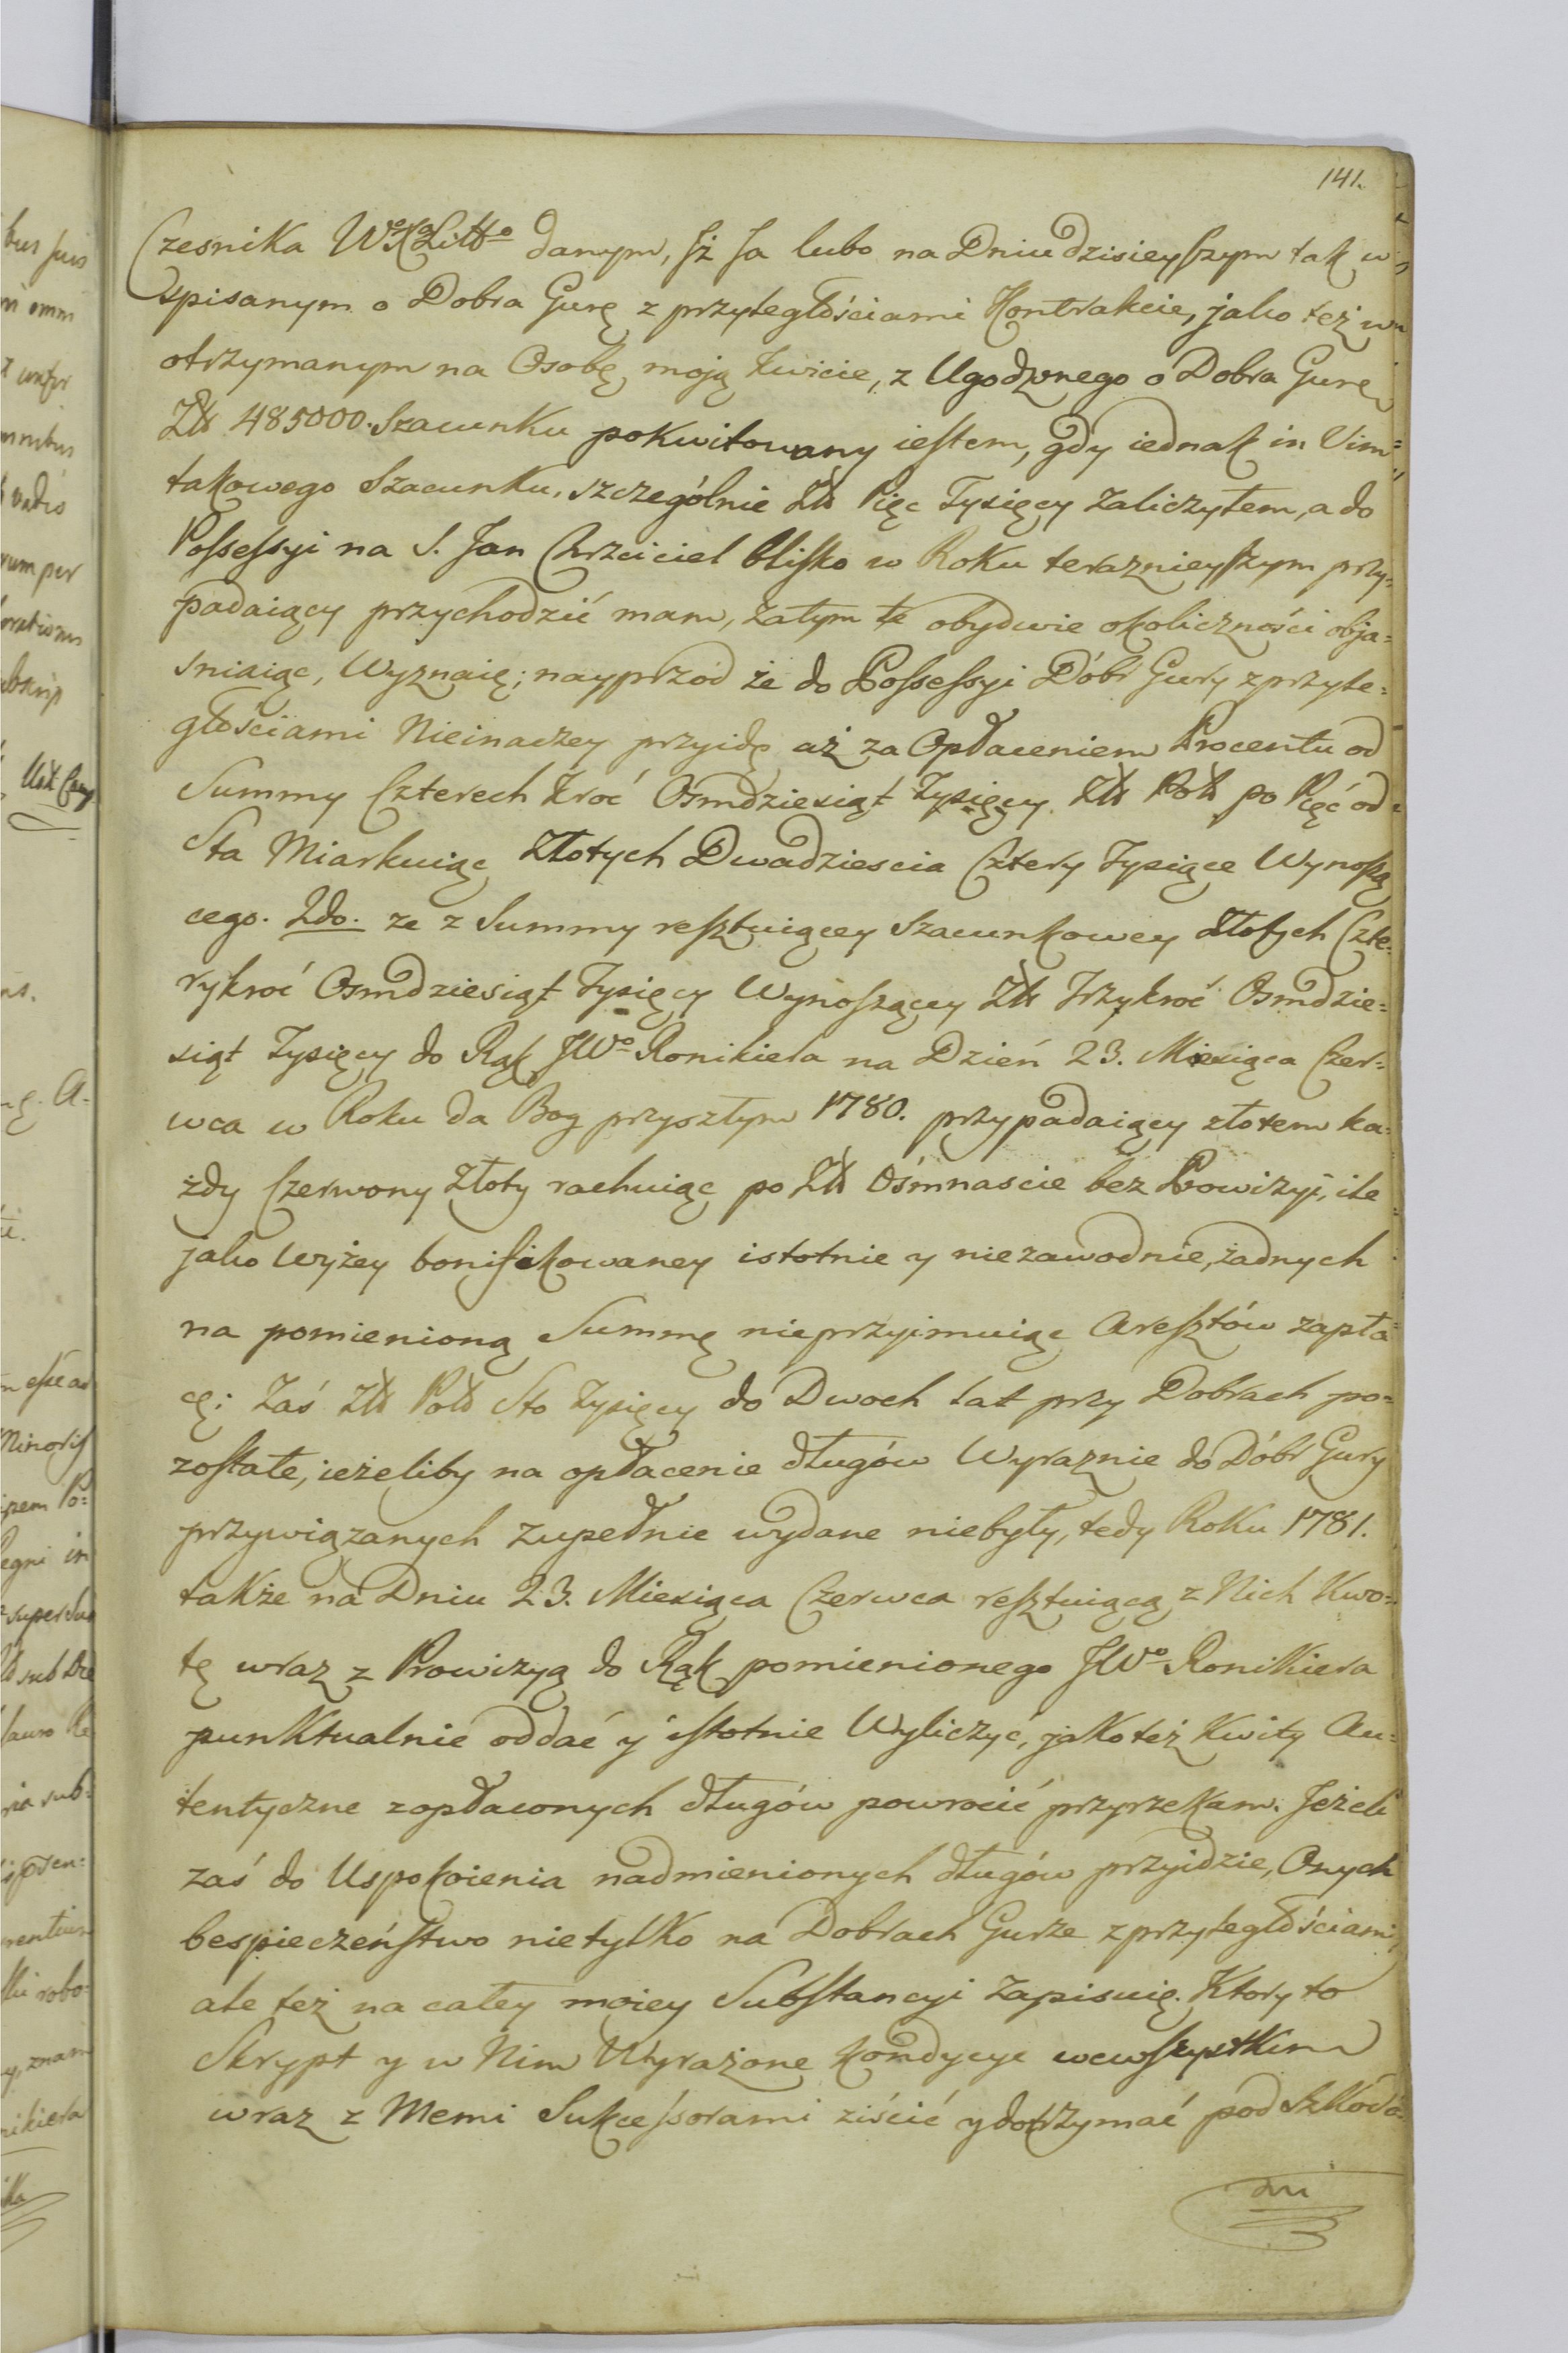 141.
Czesnika Wo Xa Litto danym, Jż Ja lubo na Dniu dzisieyszym tak w
spisanym o Dobra Gurę z przyległościami Kontrakcie, jako też w
otrzymanym na Osobę moją kwicie, z Ugodzonego o Dobra Gurę
Złł 485000. Szacunku pokwitowany iestem, gdy iednak in Vim
takowego Szacunku, szczególnie Złł Pięc Tysięcy zaliczyłem, a do
Possessyi na S. Jan Chrzciciel blisko w Roku teraznieyszym przy=
padaiący przychodzić mam, zatym te obydwie okoliczności obja=
sniaiąc, Wyznaię; nayprzód że do Possessyi Dóbr Gury z przyle=
głościami Nieinaczey przyidę aż za Opłaceniem Procentu od
Summy Czterech kroć Osmdziesiąt Tysięcy Złł Polł po Pięć od
Sta Miarkuiąc Złotych Dwadziescia Cztery Tysiące Wynoszą
cego. 2do. ze z Summy resztuiącey Szacunkowey Złotych Czte=
rykroć Osmdziesiąt Tysięcy Wynoszącey Złł Trzykroć Osmdzie=
siąt Tysięcy do Rąk JWo Ronikiera na Dzień 23. Miesiąca Czer=
wca w Roku da Bog przyszłym 1780. przypadaiący złotem ka=
żdy Czerwony Złoty rachuiąc po Złł Ośmnascie bez Prowizyi, ile
jako Wyżey bonifikowaney istotnie y niezawodnie, żadnych
na pomienioną Summę nieprzyimuiąc Aresztów zapła=
cę; Zaś Złł Polł Sto Tysięcy do Dwoch lat przy Dobrach po=
zostałe, ieżeliby na opłacenie długów Wyraznie do Dóbr Gury
przywiązanych zupełnie wydane niebyły, tedy Roku 1781.
także na Dniu 23. Miesiąca Czerwca resztuiącą z Nich Kwo=
tę wraz z Prowizyą do Rąk pomienionego JWo Ronikiera
punktualnie oddać y istotnie Wyliczyć, jako też Kwity Au=
tentyczne zopłaconych długów powrocić przyrzekam. Jeżeli
zaś do Uspokoienia nadmienionych długów przyidzie, Onych
bespieczeństwo nietylko na Dobrach Gurze z przyległościami,
ale też na całey moiey Substancyi Zapisuię. Ktory to
Skrypt y w Nim Wyrażone kondycye wewszystkim
wraz z Memi Sukcessorami ziścić y dotrzymać pod Szkoda=
mi